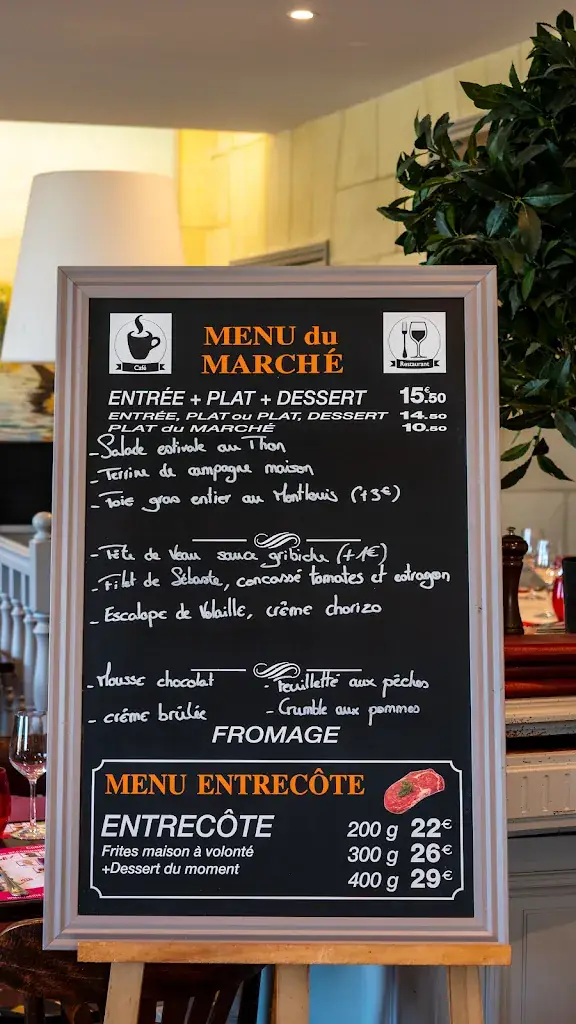 Café
MENU du
MARCHÉ
Restaurant
ENTRÉE + PLAT + DESSERT 15€.50
ENTRÉE, PLAT ou PLAT, DESSERT 14.50
PLAT du MARCHÉ 10.50
- Salade estivale au Thon
- Terrine de campagne maison
- Foie gras entier au Montlouis (+3€)
- Tête de Veau sauce gribiche (+1€)
- Filet de Sébaste, concassé tomates et estragon
- Escalope de Volaille, crème chorizo
- Mousse chocolat - Feuilletté aux pêches
- crème brûlée - Crumble aux pommes
FROMAGE
MENU ENTRECÔTE
ENTRECÔTE 200 g 22€
Frites maison à volonté 300 g 26€
+Dessert du moment 400 g 29€